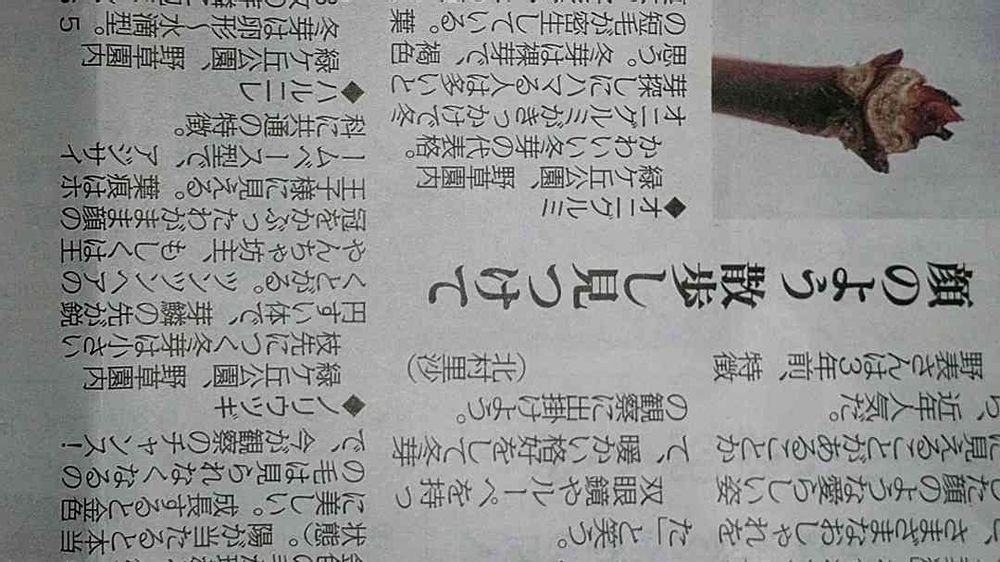 、さまざまなおしゃれを
った顔のような愛らしい姿
に見えることがあることか
ら、近年人気だ。
野麦さんは3年前、特徴
顔のよう 散歩し見つけて
た」と笑う。
双眼鏡やルーペを持っ
て、暖かい格好をして冬芽
の観察に出掛けよう。
(北村里沙)
◆オニグルミ
緑ケ丘公園、野草園内
かわいい冬芽の代表格。
オニグルミがきっかけで冬
芽探しにハマる人は多いと
思う。冬芽は裸芽で、褐色
の短毛が密生している。葉
状態)。陽が当たると本当
に美しい。成長すると金色
の毛は見られなくなるの
で、今が観察のチャンス!
◆ノリウツギ
緑ケ丘公園、野草園内
枝先につく冬芽は小さい
円すい体で、芽鱗の先が鋭
くとがる。ツンツンヘアの
やんちゃ坊主、もしくは王
冠をかぶったわがまま顔の
王子様に見える。葉痕はホ
ームベース型で、アジサイ
科に共通の特徴。
◆ハルニレ
緑ケ丘公園、野草園内
冬芽は卵形〜水滴型。5